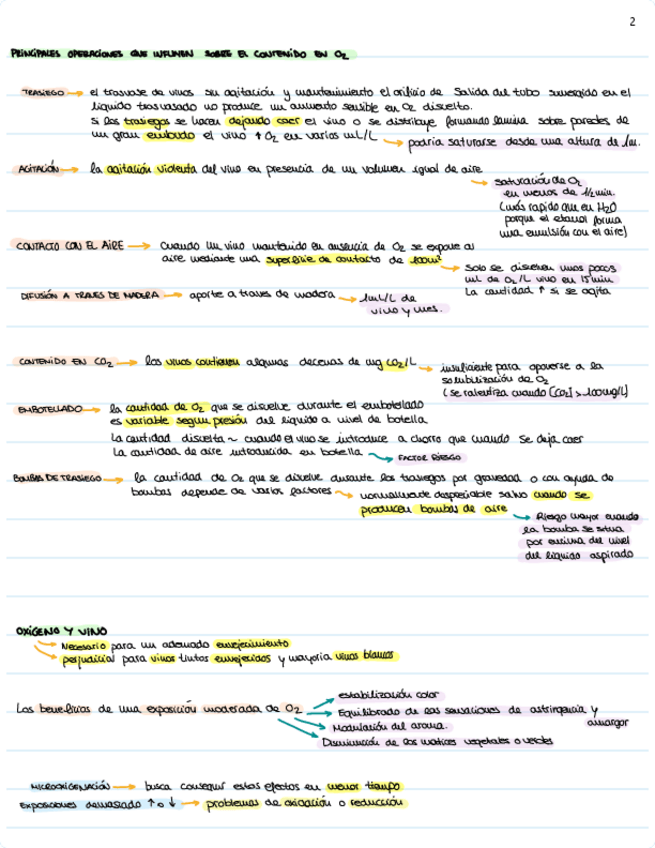 2
PRINCIPALES OPERACIONES QUE INFLUYEN SOBRE EL CONTENIDO EN O2
TRASIEGO → el trasvase de vinos sin agitación y mantenimiento el orificio de salida del tubo sumergido en el
líquido trasvasado no produce un aumento sensible en O2 disuelto.
Si los trasiegos se hacen dejando caer el vino o se distribuye formando lamina sobre paredes de
un gran embudo el vino ↑ O2 en varios mL/L → podría saturarse desde una altura de 1m.
AGITACIÓN → la agitación violenta del vino en presencia de un volumen igual de aire
→ saturación de O2
en menos de 1/2 min.
(más rapido que en H2O
porque el etanol forma
una emulsión con el aire)
CONTACTO CON EL AIRE → Cuando un vino mantenido en ausencia de O2 se expone al
aire mediante una superficie de contacto de 100m²
→ Solo se disuelven unos pocos
mL de O2/L vino en 15 min
La cantidad ↑ si se agita
DIFUSIÓN A TRAVES DE MADERA → aporte a traves de madera → 1mL/L de
vino y mes.
CONTENIDO EN CO2 → los vinos contienen algunas decenas de mg CO2/L
→ insuficiente para oponerse a la
solubilización de O2
(se ralentiza cuando [CO2] > 100mg/L)
EMBOTELLADO → la cantidad de O2 que se disuelve durante el embotellado
es variable segun presión del líquido a nivel de botella.
La cantidad disuelta ~ cuando el vino se introduce a chorro que cuando se deja caer
La cantidad de aire introducida en botella → FACTOR RIESGO
BOMBAS DE TRASIEGO → la cantidad de O2 que se disuelve durante los trasiegos por gravedad o con ayuda de
bombas depende de varios factores → normalmente despreciable salvo cuando se
producen bombas de aire
→ Riesgo mayor cuando
la bomba se situa
por encima del nivel
del líquido aspirado
OXÍGENO Y VINO
→ Necesario para un adecuado envejecimiento
→ perjudicial para vinos tintos envejecidos y mayoria vinos blancos
Los beneficios de una exposición moderada de O2
→ estabilización color
→ Equilibrado de las sensaciones de astringencia y
amargor
→ Modulación del aroma.
→ Disminución de los matices vegetales o verdes
MICROOXIGENACIÓN → busca conseguir estos efectos en menor tiempo
EXPOSICIONES demasiado ↑ o ↓ → problemas de oxidación o reducción